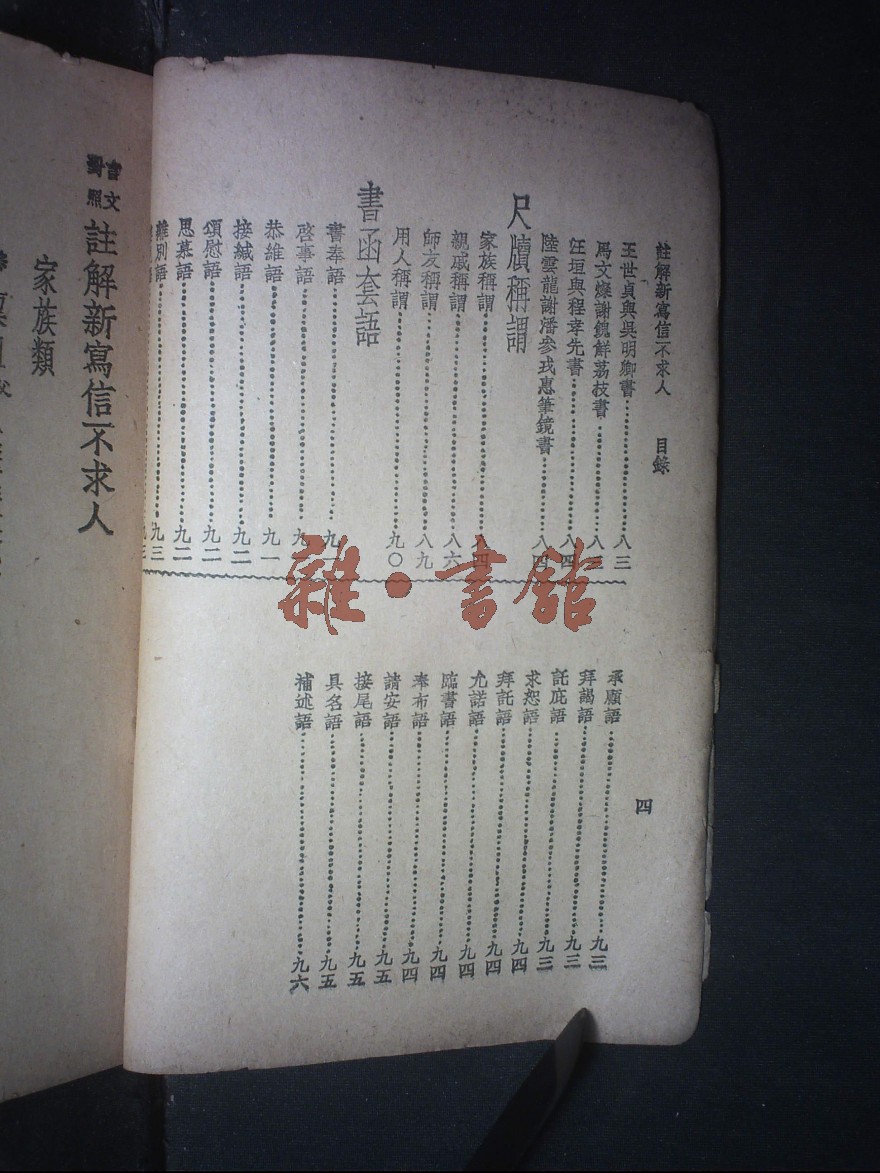 註解新寫信不求人 目錄
四
王世貞與吳明卿書 八三
馬文燦謝餽鮮荔枝書 八三
汪垣與程幸先書 八四
陸雲龍謝潘參戎惠筆鏡書 八四
尺牘稱謂
家族稱謂 八四
親戚稱謂 八六
師友稱謂 八九
用人稱謂 九〇
書函套語
書奉語 九一
啓事語 九一
恭維語 九一
接緘語 九二
頌慰語 九二
思慕語 九二
離別語 九三
承願語 九三
拜謁語 九三
託庇語 九三
求恕語 九四
拜託語 九四
允諾語 九四
臨書語 九四
奉布語 九四
請安語 九五
接尾語 九五
具名語 九五
補述語 九六
雜·書館
言文對照
註解新寫信不求人
家族類